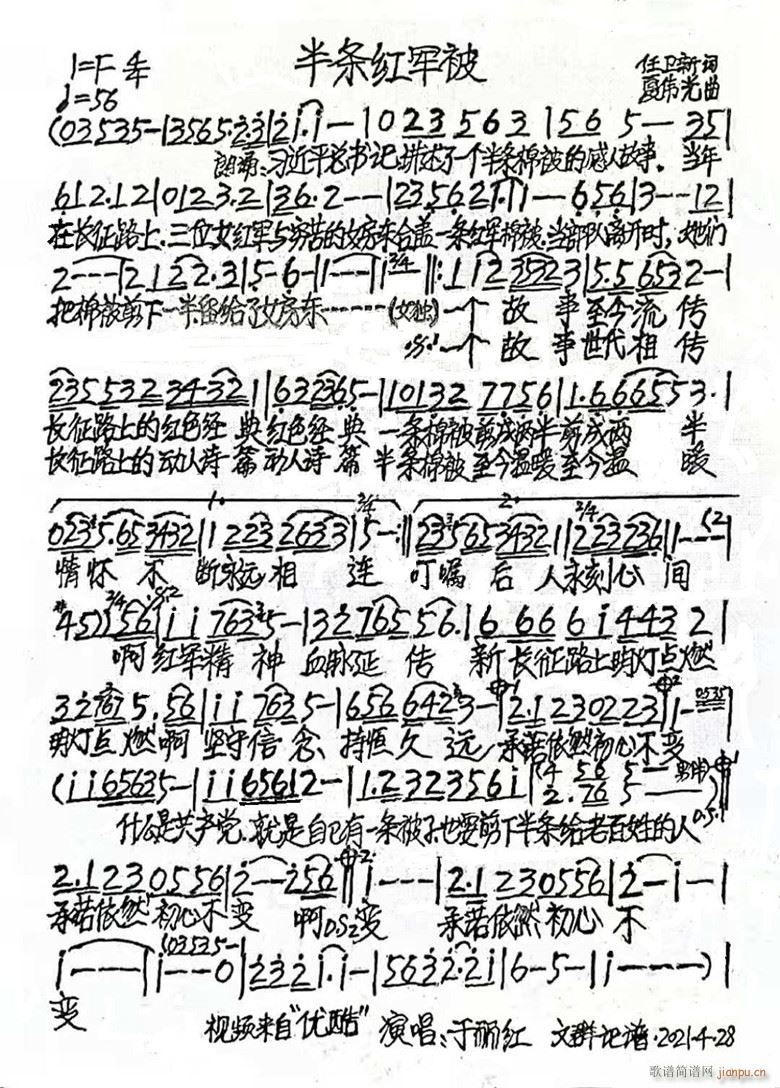 半条红军被
1=F 4/4
♩=56
任卫新词
夏伟光曲
(03535-|3565·2̇3̇|2̇1̇·1̇--|023563|565--35|
朗诵:习近平总书记讲述了一个半条棉被的感人故事。当年
612·12|0123·2|36·2--|235621·1|--656|3--12|
在长征路上,三位女红军与穷苦的女房东合盖一条红军棉被,当部队离开时,她们
2---|2122·3|5-6-|1---|1 3/4-‖:11235323|5·56532-|
把棉被剪下一半留给了女房东………(女独)一个故事至今流传
D.S.一个故事世代相传
235532 34·321|632365-|10132 7756|1·666553·|
长征路上的红色经典红色经典 一条棉被剪成两半剪成两半
长征路上的动人诗篇动人诗篇 半条棉被至今温暖至今温暖
1. 3/4 2.
0235·653432|1223 2633|5-:‖235653432|2/4 223236|1--52|
情怀不断永远相连 叮嘱后人永刻心间
#45)2/4 56|1̇1̇7635-|3276556·|66661̇4432|
啊红军精神血脉延传 新长征路上明灯点燃
327675·56|1̇1̇7635-|6566423-|2·1230223|1-0535|
明灯点燃啊 坚守信念 持恒久远 承诺依然初心不变
(1̇1̇65635-|1̇1̇65612-|1·232356i|(4 56 5-- 男诵)
2·76 5--) D.S.
什么是共产党,就是自己有一条被子也要剪下半条给老百姓的人
2·1230556|2̇--2̇56‖1̇---|2·1230556|2̇-1̇-|
承诺依然初心不变 啊D.S.2变 承诺依然初心不
1̇----|1̇---0(03535-|2̇3̇2̇1̇·1̇-|5632̇·2̇1̇|6-5-|1̇----)|
变
视频来自“优酷” 演唱:于丽红 文群记谱·2021·4·28
歌谱简谱网
jianpu.cn